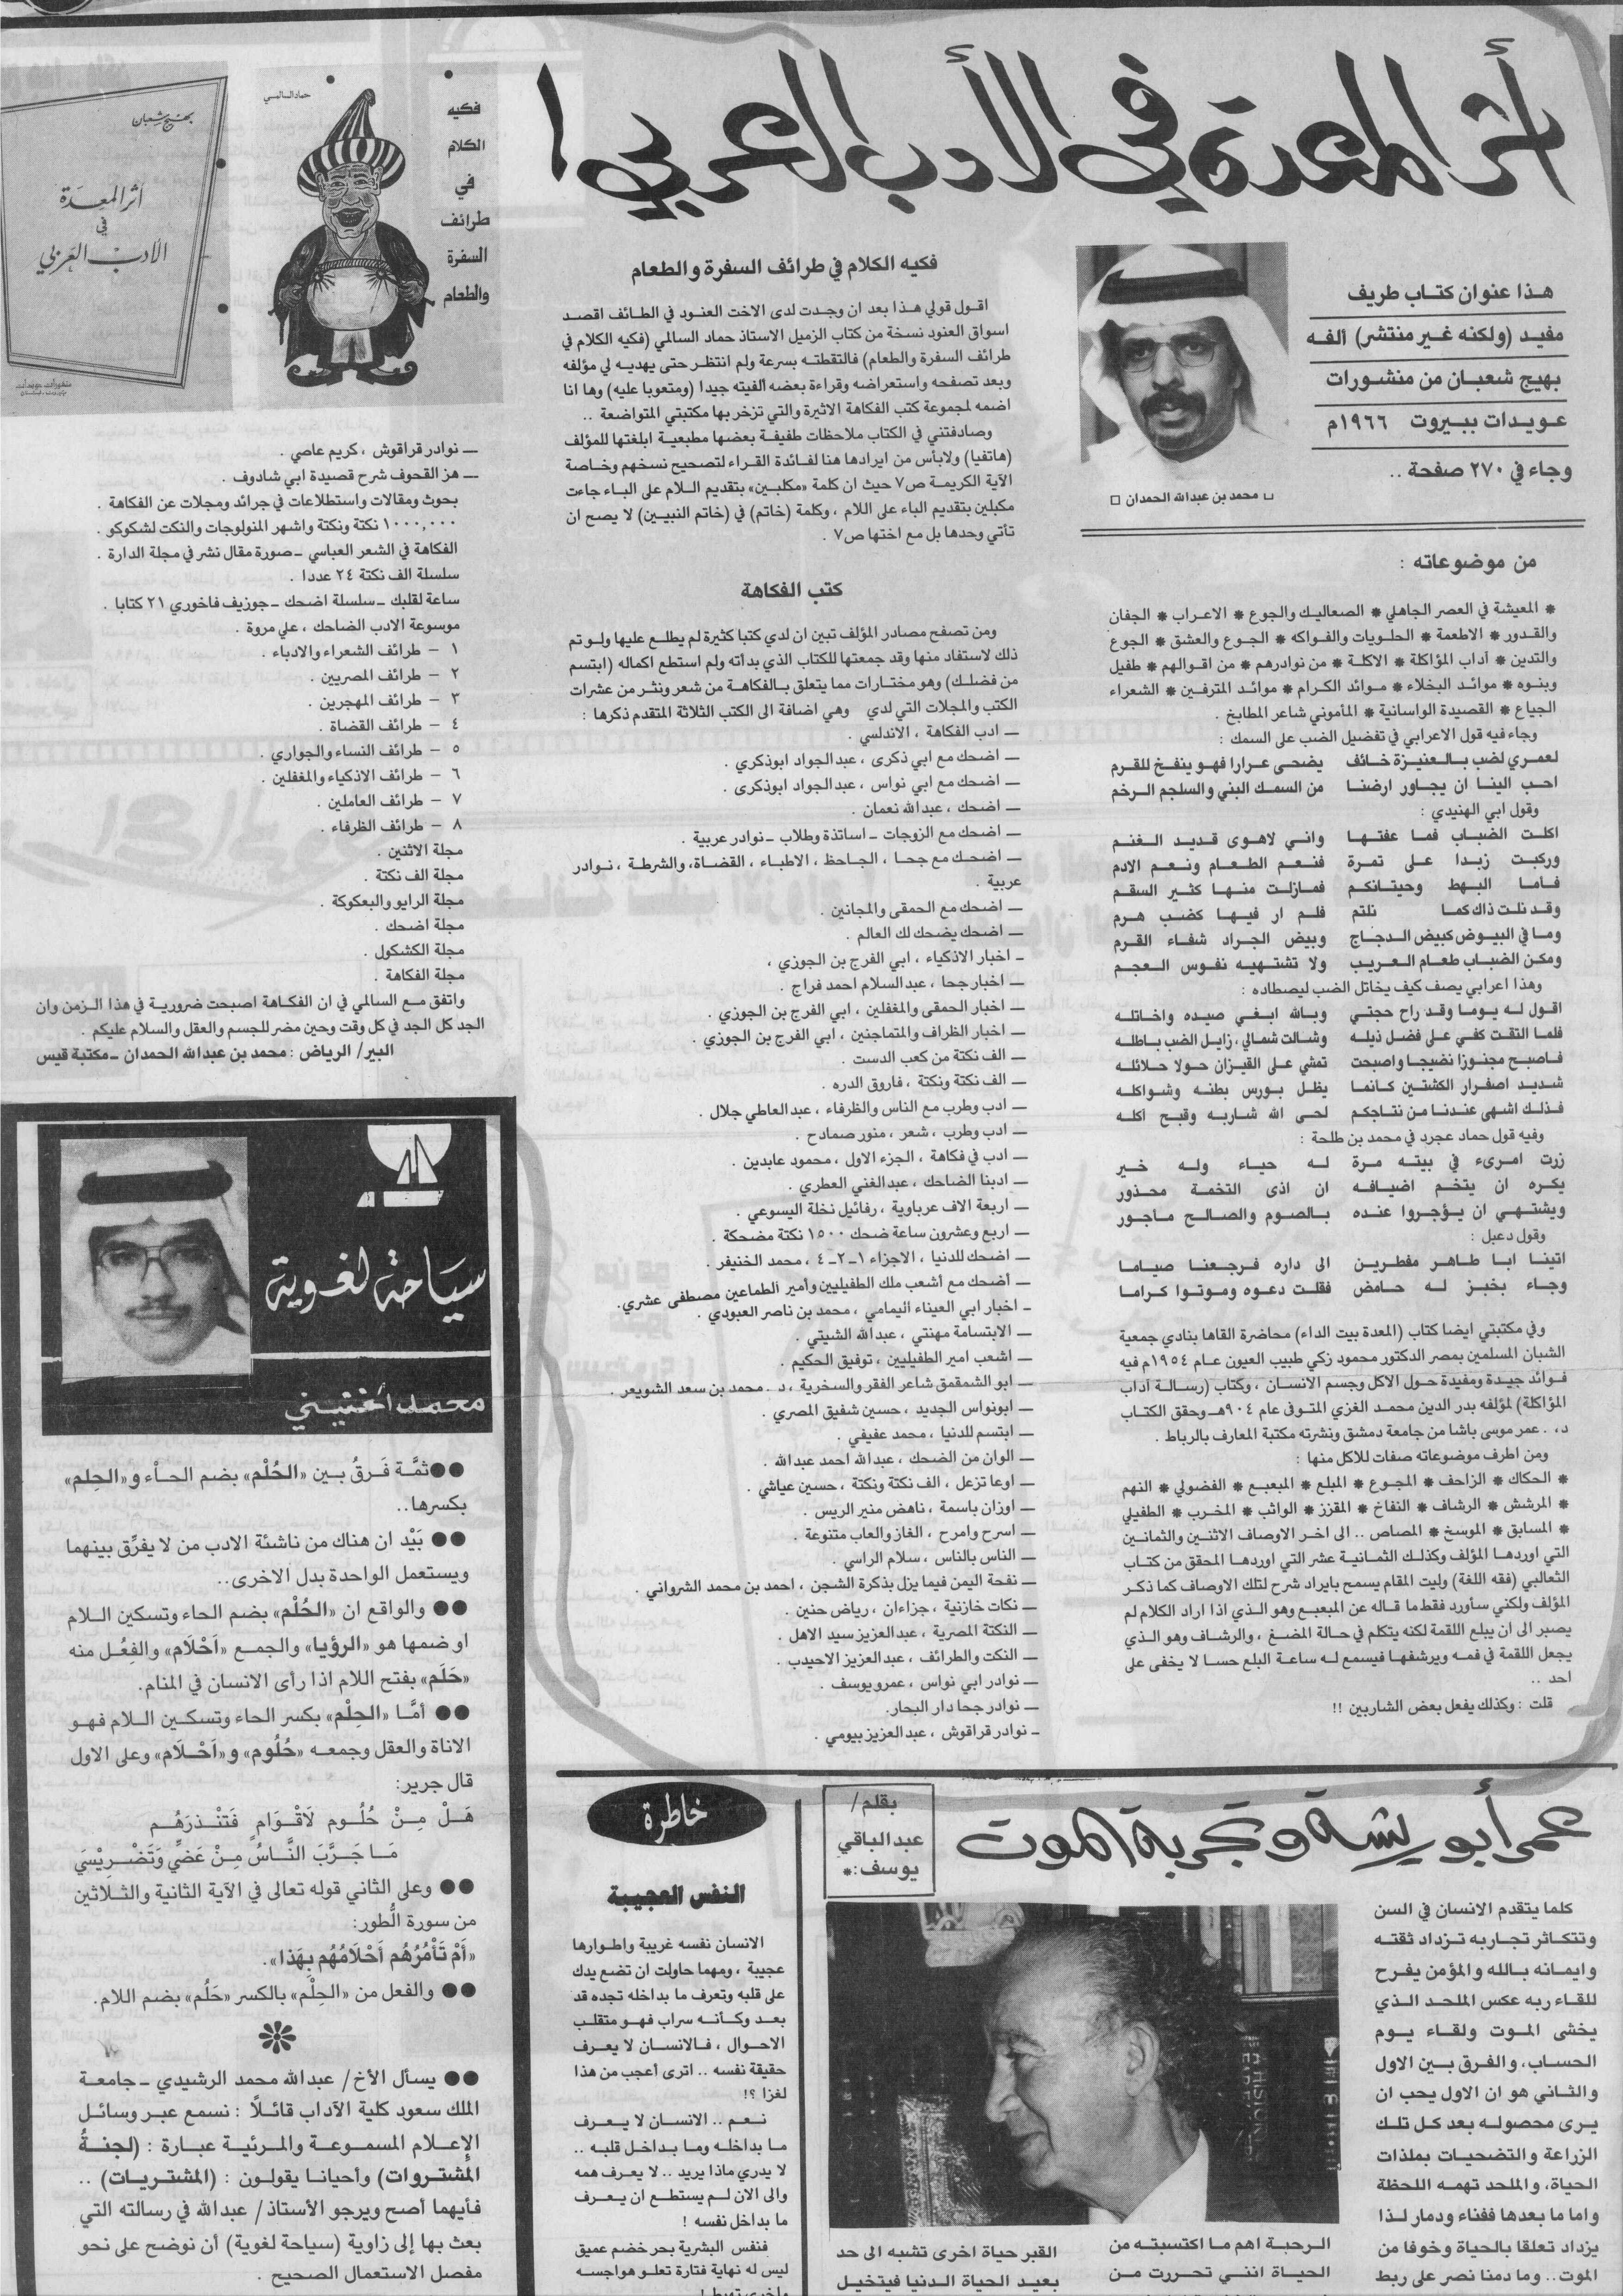 أثر المعدة في الأدب العربي!
هذا عنوان كتاب طريف
مفيد (ولكنه غير منتشر) الفه
بهيج شعبان من منشورات
عويدات ببيروت ١٩٦٦م
وجاء في ٢٧٠ صفحة ..
محمد بن عبدالله الحمدان
من موضوعاته :
* المعيشة في العصر الجاهلي * الصعاليك والجوع * الاعراب * الجفان
والقدور * الاطعمة * الحلويات والفواكه * الجوع والعشق * الجوع
والتدين * آداب المؤاكلة * الاكلة * من نوادرهم * من اقوالهم * طفيل
وبنوه * موائد البخلاء * موائد الكرام * موائد المترفين * الشعراء
الجياع * القصيدة الواسانية * المأموني شاعر المطابخ .
وجاء فيه قول الاعرابي في تفضيل الضب على السمك :
لعمري لضب بالعنيزة خائف يضحى عرارا فهو ينفخ للقرم
احب الينا ان يجاور ارضنا من السمك البني والسلجم الرخم
وقول ابي الهنيدي :
اكلت الضباب فما عفتها واني لاهوى قديد الغنم
وركبت زبدا على تمرة فنعم الطعام ونعم الادم
فاما البهط وحيتانكم فمازلت منها كثير السقم
وقد نلت ذاك كما نلتم فلم ار فيها كضب هرم
وما في البيوض كبيض الدجاج وبيض الجراد شفاء القرم
ومكن الضباب طعام العريب ولا تشتهيه نفوس العجم
وهذا اعرابي يصف كيف يخاتل الضب ليصطاده :
اقول له يوما وقد راح حجتي وبالله ابغي صيده واخاتله
فلما التقت كفي على فضل ذيله وشالت شمالي، زايل الضب باطله
فاصبح مجنوزا نضيجا واصبحت تمشي على القيزان حولا حلائله
شديد اصفرار الكشتين كانما يظل بورس بطنه وشواكله
فذلك اشهى عندنا من نتاجكم لحى الله شاربه وقبح آكله
وفيه قول حماد عجرد في محمد بن طلحة :
زرت امرىء في بيته مرة له حياء وله خير
يكره ان يتخم اضيافه ان اذى التخمة محذور
ويشتهي ان يؤجروا عنده بالصوم والصالح ماجور
وقول دعبل :
اتينا ابا طاهر مفطرين الى داره فرجعنا صياما
وجاء بخبز له حامض فقلت دعوه وموتوا كراما
وفي مكتبتي ايضا كتاب (المعدة بيت الداء) محاضرة القاها بنادي جمعية
الشبان المسلمين بمصر الدكتور محمود زكي طبيب العيون عام ١٩٥٤م فيه
فوائد جيدة ومفيدة حول الاكل وجسم الانسان ، وكتاب (رسالة آداب
المؤاكلة) لمؤلفه بدر الدين محمد الغزي المتوفى عام ٩٠٤هـ وحقق الكتاب
د. عمر موسى باشا من جامعة دمشق ونشرته مكتبة المعارف بالرباط .
ومن اطرف موضوعاته صفات للاكل منها :
* الحكاك * الزاحف * المجوع * المبلع * المبعبع * الفضولي * النهم
* المرشش * الرشاف * النفاخ * المقزز * الواثب * المخرب * الطفيلي
* المسابق * الموسخ * المصاص .. الى اخر الاوصاف الاثنين والثمانين
التي اوردها المؤلف وكذلك الثمانية عشر التي اوردها المحقق من كتاب
الثعالبي (فقه اللغة) وليت المقام يسمح بايراد شرح لتلك الاوصاف كما ذكر
المؤلف ولكني سأورد فقط ما قاله عن المبعبع وهو الذي اذا اراد الكلام لم
يصبر الى ان يبلع اللقمة لكنه يتكلم في حالة المضغ ، والرشاف وهو الذي
يجعل اللقمة في فمه ويرشفها فيسمع له ساعة البلع حسا لا يخفى على
احد ..
قلت : وكذلك يفعل بعض الشاربين !!
فكيه الكلام في طرائف السفرة والطعام
اقول قولي هذا بعد ان وجدت لدى الاخت العنود في الطائف اقصد
اسواق العنود نسخة من كتاب الزميل الاستاذ حماد السالمي (فكيه الكلام في
طرائف السفرة والطعام) فالتقطته بسرعة ولم انتظر حتى يهديه لي مؤلفه
وبعد تصفحه واستعراضه وقراءة بعضه الفيته جيدا (ومتعوبا عليه) وها انا
اضمه لمجموعة كتب الفكاهة الاثيرة والتي تزخر بها مكتبتي المتواضعة ..
وصادفتني في الكتاب ملاحظات طفيفة بعضها مطبعية ابلغتها للمؤلف
(هاتفيا) ولابأس من ايرادها هنا لفائدة القراء لتصحيح نسخهم وخاصة
الآية الكريمة ص٧ حيث ان كلمة «مكلبين» بتقديم اللام على الباء جاءت
مكبلين بتقديم الباء على اللام ، وكلمة (خاتم) في (خاتم النبيين) لا يصح ان
تأتي وحدها بل مع اختها ص٧ .
كتب الفكاهة
ومن تصفح مصادر المؤلف تبين ان لدي كتبا كثيرة لم يطلع عليها ولو تم
ذلك لاستفاد منها وقد جمعتها للكتاب الذي بدأته ولم استطع اكماله (ابتسم
من فضلك) وهو مختارات مما يتعلق بالفكاهة من شعر ونثر من عشرات
الكتب والمجلات التي لدي وهي اضافة الى الكتب الثلاثة المتقدم ذكرها :
— ادب الفكاهة ، الاندلسي .
— اضحك مع ابي ذكرى ، عبدالجواد ابوذكري .
— اضحك مع ابي نواس ، عبدالجواد ابوذكرى .
— اضحك ، عبدالله نعمان .
— اضحك مع الزوجات ـ اساتذة وطلاب ـ نوادر عربية .
— اضحك مع جحا ، الجاحظ ، الاطباء ، القضاة، والشرطة ، نوادر
عربية .
— اضحك مع الحمقى والمجانين .
— اضحك يضحك لك العالم .
ـ اخبار الاذكياء ، ابي الفرج بن الجوزي ،
— اخبار جحا ، عبدالسلام احمد فراج .
— اخبار الحمقى والمغفلين ، ابي الفرج بن الجوزي .
— اخبار الظراف والمتماجنين ، ابي الفرج بن الجوزي .
— الف نكتة من كعب الدست .
— الف نكتة ونكتة ، فاروق الدره .
— ادب وطرب مع الناس والظرفاء ، عبدالعاطي جلال .
— ادب وطرب ، شعر ، منور صمادح .
— ادب في فكاهة ، الجزء الاول ، محمود عابدين .
— ادبنا الضاحك ، عبدالغني العطري .
— اربعة الاف عرباوية ، رفائيل نخلة اليسوعي .
— اربع وعشرون ساعة ضحك ١٥٠٠ نكتة مضحكة .
— اضحك للدنيا ، الاجزاء ١ـ ٢ـ ٤ ، محمد الخنيفر .
— أضحك مع أشعب ملك الطفيليين وأمير الطماعين مصطفى عشري.
ـ اخبار ابي العيناء اليمامي ، محمد بن ناصر العبودي .
— الابتسامة مهنتي ، عبدالله الشيتي .
— اشعب امير الطفيليين ، توفيق الحكيم .
— ابو الشمقمق شاعر الفقر والسخرية ، د. محمد بن سعد الشويعر .
— ابونواس الجديد ، حسين شفيق المصري .
— ابتسم للدنيا ، محمد عفيفي .
— الوان من الضحك ، عبدالله احمد عبدالله .
— اوعا تزعل ، الف نكتة ونكتة ، حسين عياشي .
— اوزان باسمة ، ناهض منير الريس .
— اسرح وامرح ، الغاز والعاب متنوعة .
— الناس بالناس ، سلام الراسي .
— نفحة اليمن فيما يزل بذكرة الشجن ، احمد بن محمد الشرواني .
— نكات خازنية ، جزاءان ، رياض حنين .
— النكتة المصرية ، عبدالعزيز سيد الاهل .
— النكت والطرائف ، عبدالعزيز الاحيدب .
— نوادر ابي نواس ، عمرو يوسف .
— نوادر جحا دار البحار.
ـ نوادر قراقوش ، عبدالعزيز بيومي .
حماد السالمي
فكيه
الكلام
في
طرائف
السفرة
والطعام
بهيج شعبان
أثر المعدة
في
الأدب العربي
منشورات عويدات
— نوادر قراقوش ، كريم عاصي .
— هز القحوف شرح قصيدة ابي شادوف .
بحوث ومقالات واستطلاعات في جرائد ومجلات عن الفكاهة .
١٠٠٠,٠٠٠ نكتة ونكتة واشهر المنولوجات والنكت لشكوكو .
الفكاهة في الشعر العباسي ـ صورة مقال نشر في مجلة الدارة .
سلسلة الف نكتة ٢٤ عددا .
ساعة لقلبك ـ سلسلة اضحك ـ جوزيف فاخوري ٢١ كتابا .
موسوعة الادب الضاحك ، علي مروة .
١ - طرائف الشعراء والادباء .
٢ - طرائف المصريين .
٣ - طرائف المهجرين .
٤ - طرائف القضاة .
٥ - طرائف النساء والجواري .
٦ - طرائف الاذكياء والمغفلين .
٧ - طرائف العاملين .
٨ - طرائف الظرفاء .
مجلة الاثنين .
مجلة الف نكتة .
مجلة الرايو والبعكوكة .
مجلة اضحك .
مجلة الكشكول .
مجلة الفكاهة .
واتفق مع السالمي في ان الفكاهة اصبحت ضرورية في هذا الزمن وان
الجد كل الجد في كل وقت وحين مضر للجسم والعقل والسلام عليكم .
البير/ الرياض : محمد بن عبدالله الحمدان ـ مكتبة قيس
سياحة لغوية
محمد الختيني
●●ثمَّة فَرقُ بين «الحُلْم» بضم الحاْء و«الحِلم»
بكسرها..
●● بَيْد ان هناك من ناشئة الادب من لا يفرِّق بينهما
ويستعمل الواحدة بدل الاخرى..
●● والواقع ان «الحُلْم» بضم الحاء وتسكين اللام
او ضمها هو «الرؤيا» والجمع «اَحْلَام» والفِعْل منه
«حَلَم» بفتح اللام اذا رأى الانسان في المنام.
●● أمَّا «الحِلْم» بكسر الحاء وتسكين اللام فهو
الاناة والعقل وجمعه «حُلُوم» و«اَحْلَام» وعلى الاول
قال جرير:
هَلْ مِنْ حُلُوم لَاقْوَامٍ فَتَنْذرَهُم
مَا جَرَّبَ النَّاسُ مِنْ عَضِّي وَتَضْرِيْسَي
●● وعلى الثاني قوله تعالى في الآية الثانية والثلاثين
من سورة الُّطور:
«أمْ تَأْمُرُهُم أَحْلَامُهُم بِهَذا».
●● والفعل من «الحِلْم» بالكسر «حَلُم» بضم اللام.
●● يسأل الأخ/ عبدالله محمد الرشيدي ـ جامعة
الملك سعود كلية الآداب قائلاً : نسمع عبر وسائل
الإعلام المسموعة والمرئية عبارة : (لجنةُ
المشتروات) وأحيانا يقولون : (المشتريات) ..
فأيهما أصح ويرجو الأستاذ/ عبدالله في رسالته التي
بعث بها إلى زاوية (سياحة لغوية) أن نوضح على نحو
مفصل الاستعمال الصحيح .
عمر أبو ريشة وتجربة الموت
بقلم/
عبدالباقي
يوسف:*
كلما يتقدم الانسان في السن
وتتكاثر تجاربه تزداد ثقته
وايمانه بالله والمؤمن يفرح
للقاء ربه عكس الملحد الذي
يخشى الموت ولقاء يوم
الحساب، والفرق بين الاول
والثاني هو ان الاول يحب ان
يرى محصوله بعد كل تلك
الزراعة والتضحيات بملذات
الحياة، والملحد تهمه اللحظة
واما ما بعدها ففناء ودمار لذا
يزداد تعلقا بالحياة وخوفا من
الموت.. وما دمنا نصر على ربط
الرحبة اهم ما اكتسبته من
الحياة انني تحررت من
القبر حياة اخرى تشبه الى حد
بعيد الحياة الدنيا فيتخيل
خاطرة
النفس العجيبة
الانسان نفسه غريبة واطوارها
عجيبة ، ومهما حاولت ان تضع يدك
على قلبه وتعرف ما بداخله تجده قد
بعد وكأنه سراب فهو متقلب
الاحوال ، فالانسان لا يعرف
حقيقة نفسه .. اترى أعجب من هذا
لغزا ؟!
نعم .. الانسان لا يعرف
ما بداخله وما بداخل قلبه ..
لا يدري ماذا يريد .. لا يعرف همه
والى الان لم يستطع ان يعرف
ما بداخل نفسه !
فنفس البشرية بحر خضم عميق
ليس له نهاية فتارة تعلو هواجسه